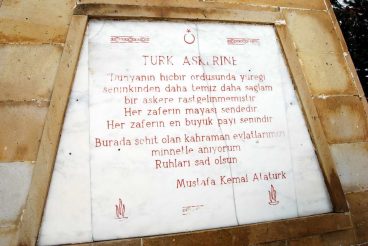 TÜRK ASKERİNE
"Dünyanın hiçbir ordusunda yüreği
seninkinden daha temiz daha sağlam
bir askere rastgelinmemiştir
Her zaferin mayası sendedir.
Her zaferin en büyük payı senindir
Burada şehit olan kahraman evlatlarımızı
minnetle anıyorum
Ruhları şad olsun.
Mustafa Kemal Atatürk